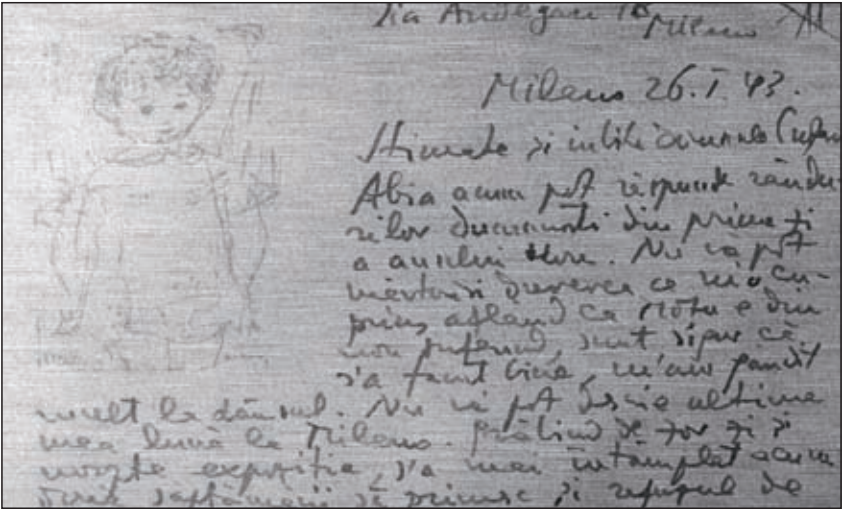 Via Andegari 18 Milano
Milano 26.I.43.
Stimate și iubite domnule
Abia acum pot răspunde rându-
rilor dumneavoastră din prima zi
a anului. Nu vă pot
mărturisi durerea ce m'a cu-
prins aflând că e din
nou suferind, sunt sigur că
s'a făcut bine, m'am gândit
mult la dânsul. Nu vă pot descrie ultima
mea lună la Milano. de zor zi și
noapte expoziția, s'a mai întâmplat acum
două săptămâni să primesc și refuzul de